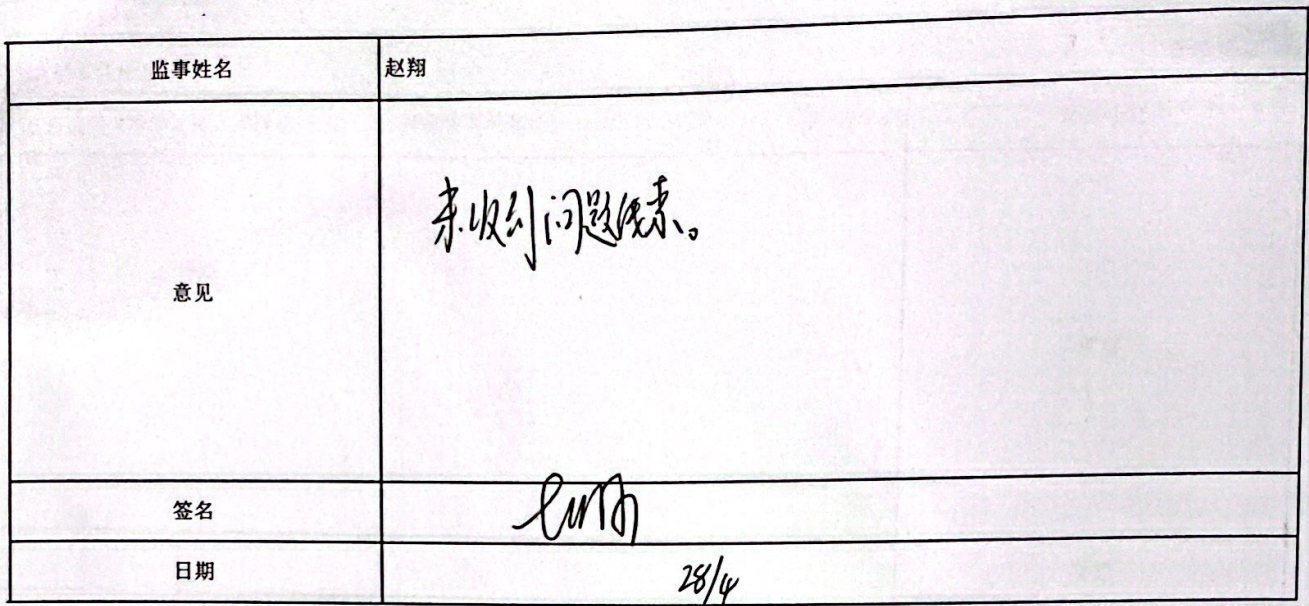 监事姓名 赵翔
意见 未收到问题线索。
签名
日期 28/4